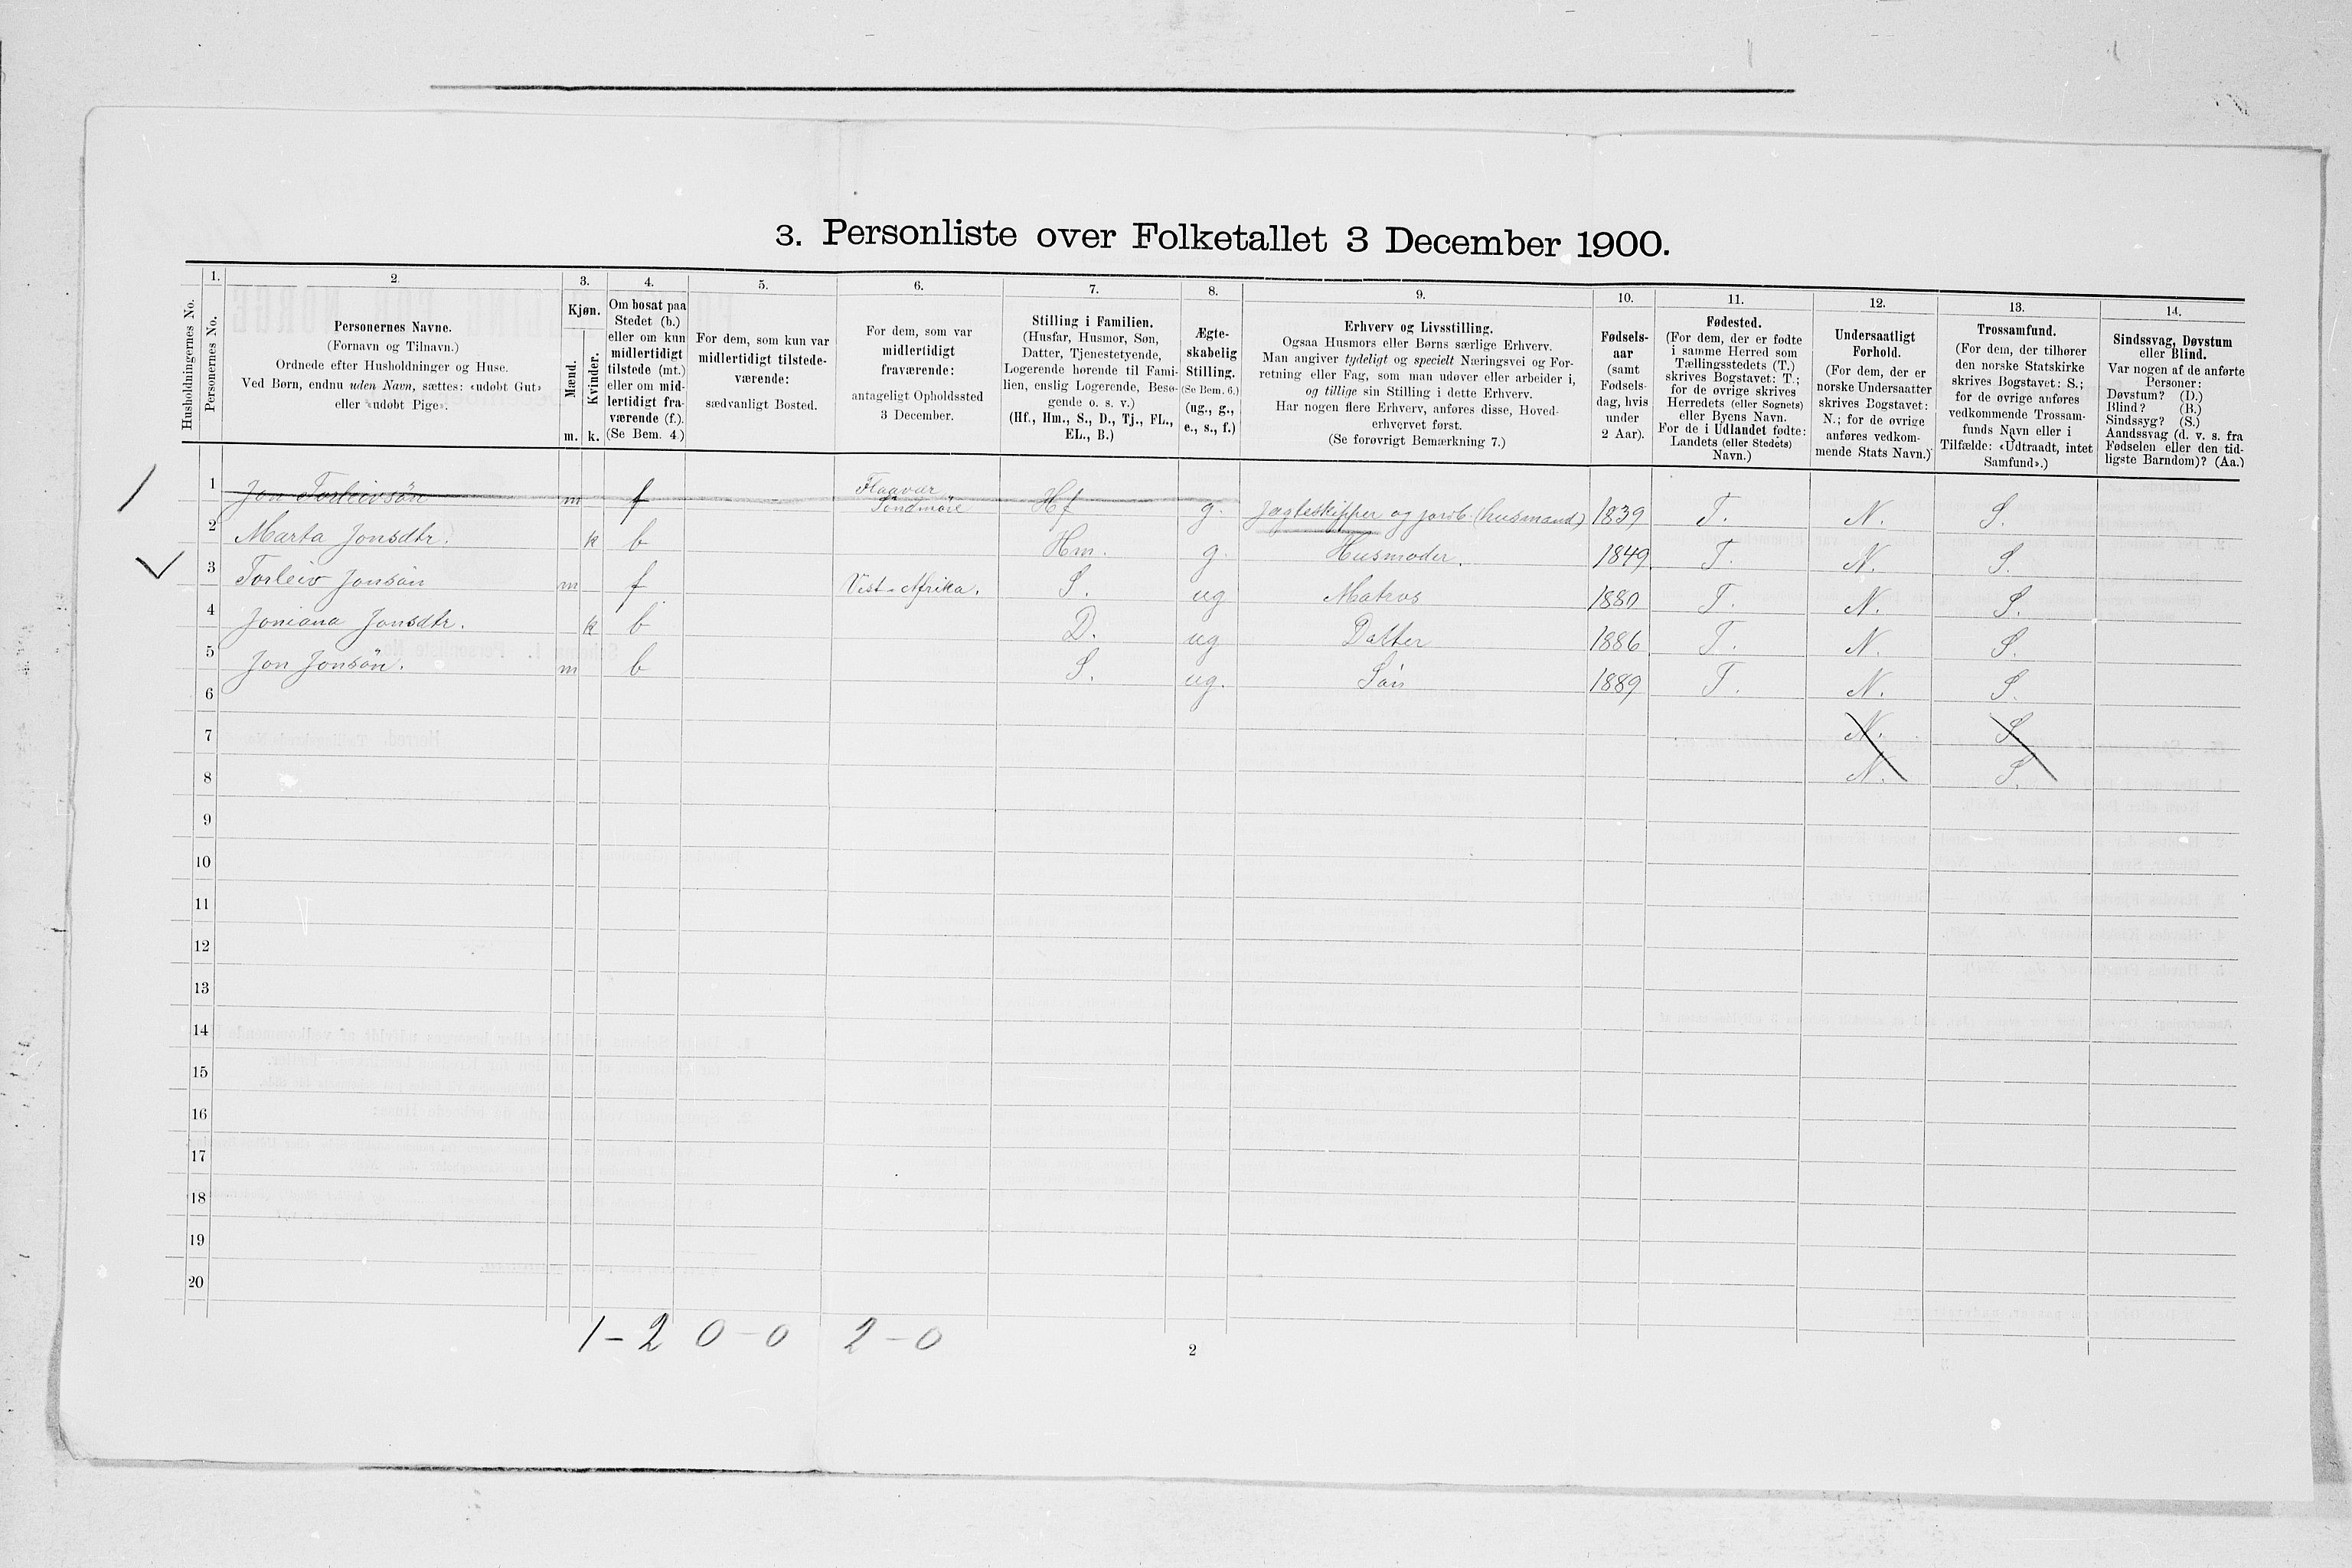 3. Personliste over Folketallet 3 December 1900.
Husholdningernes No.
1.
Personernes No.
2.
Personernes Navne.
(Fornavn og Tilnavn.)
Ordnede efter Husholdninger og Huse.
Ved Børn, endnu uden Navn, sættes: «udøbt Gut»
eller «udøbt Pige».
3.
Kjøn.
Mænd.
Kvinder.
m. k.
4.
Om bosat paa
Stedet (b.)
eller om kun
midlertidigt
tilstede (mt.)
eller om mid-
lertidigt fra-
værende (f.).
(Se Bem. 4.)
5.
For dem, som kun var
midlertidigt tilstede-
værende:
sædvanligt Bosted.
6.
For dem, som var
midlertidigt
fraværende:
antageligt Opholdssted
3 December.
7.
Stilling i Familien.
(Husfar, Husmor, Søn,
Datter, Tjenestetyende,
Logerende hørende til Fami-
lien, enslig Logerende, Besø-
gende o. s. v.)
(Hf., Hm., S., D., Tj., FL.,
EL., B.)
8.
Ægte-
skabelig
Stilling.
(Se Bem. 6.)
(ug., g.,
e., s., f.)
9.
Erhverv og Livsstilling.
Ogsaa Husmors eller Børns særlige Erhverv.
Man angiver tydeligt og specielt Næringsvei og For-
retning eller Fag, som man udøver eller arbeider i,
og tillige sin Stilling i dette Erhverv.
Har nogen flere Erhverv, anføres disse, Hoved-
erhvervet først.
(Se forøvrigt Bemærkning 7.)
10.
Fødsels-
aar
(samt
Fødsels-
dag, hvis
under
2 Aar).
11.
Fødested.
(For dem, der er fødte
i samme Herred som
Tællingsstedets (T.)
skrives Bogstavet: T.;
for de øvrige skrives
Herredets (eller Sognets)
eller Byens Navn.
For de i Udlandet fødte:
Landets (eller Stedets)
Navn.)
12.
Undersaatligt
Forhold.
(For dem, der er
norske Undersaatter
skrives Bogstavet:
N.; for de øvrige
anføres vedkom-
mende Stats Navn.)
13.
Trossamfund.
(For dem, der tilhører
den norske Statskirke
skrives Bogstavet: S.;
for de øvrige anføres
vedkommende Trossam-
funds Navn eller i
Tilfælde: «Udtraadt, intet
Samfund».)
14.
Sindssvag, Døvstum
eller Blind.
Var nogen af de anførte
Personer:
Døvstum? (D.)
Blind? (B.)
Sindssyg? (S.)
Aandssvag (d. v. s. fra
Fødselen eller den tid-
ligste Barndom)? (Aa.)
1 Jon Torleivsön m f Flaavær Söndmöre Hf g. Jagteskipper og jordb. (husmand) 1839 T. N. S.
2 Marta Jonsdtr. k b Hm. g. Husmoder. 1849 T. N. S.
3 Torleiv Jonsön m f Vest-Afrika. S. ug Matros 1880 T. N. S.
4 Joniana Jonsdtr. k b D. ug Datter 1886 T. N. S.
5 Jon Jonsön. m b S. ug. Sön 1889 T. N. S.
6 N. S
7 N. S.
8
9
10
11
12
13
14
15
16
17
18
19
20
1-2 0-0 2-0
2